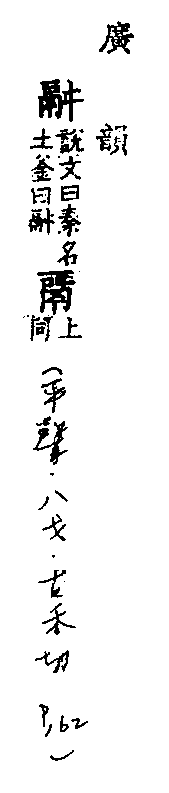 廣韻
䰛説文曰秦名土釜曰䰛 上同（平聲．八戈．古禾切 P.62）